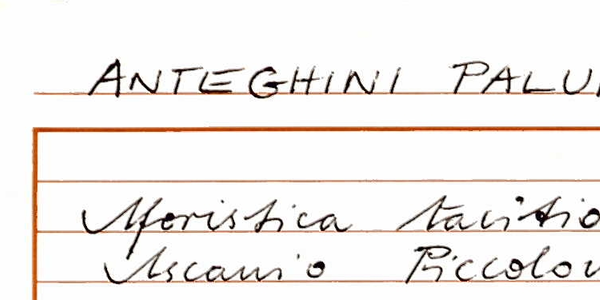 ANTEGHINI PALU
Aforistica taci
Ascanio Piccolo